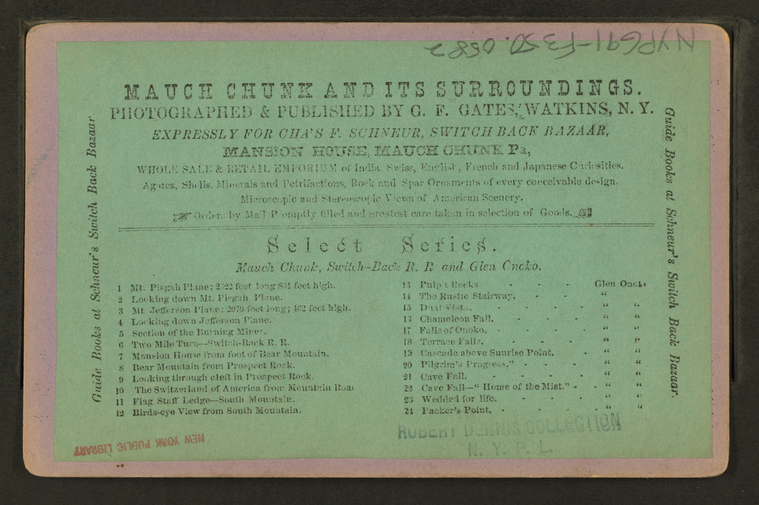 NYPG91-F350.0582
MAUCH CHUNK AND ITS SURROUNDINGS.
PHOTOGRAPHED & PUBLISHED BY G. F. GATES, WATKINS, N. Y.
EXPRESSLY FOR CHA'S F. SCHNEUR, SWITCH BACK BAZAAR,
MANSION HOUSE, MAUCH CHUNK Pa,
WHOLE SALE & RETAIL EMPORIUM of India, Swiss, English, French and Japanese Curiosities.
Agates, Shells, Minerals and Petrifactions, Rock and Spar Ornaments of every conceivable design.
Microscopic and Stereoscopic Views of American Scenery.
Orders by Mail Promptly filled and greatest care taken in selection of Goods.
Select Series.
Mauch Chunk, Switch-Back R. R. and Glen Onoko.
1 Mt. Pisgah Plane; 2322 feet long 664 feet high.
2 Looking down Mt. Pisgah Plane.
3 Mt. Jefferson Plane; 2070 feet long; 462 feet high.
4 Looking down Jefferson Plane.
5 Section of the Burning Mines.
6 Two Mile Turn--Switch-Back R. R.
7 Mansion House from foot of Bear Mountain.
8 Bear Mountain from Prospect Rock.
9 Looking through cleft in Prospect Rock.
10 The Switzerland of America from Mountain Road
11 Flag Staff Ledge--South Mountain.
12 Birds-eye View from South Mountain.
13 Pulpit Rocks - - - Glen Onoko
14 The Rustic Stairway, - - - "
15 Dual Vista, - - - - " "
16 Chameleon Fall, - - - - " "
17 Falls of Onoko, - - - - " "
18 Terrace Falls, - - - - " "
19 Cascade above Sunrise Point, - - " "
20 Pilgrim's Progress," - - - " "
21 Cave Fall, - - - - " "
22 Cave Fall--"Home of the Mist." - - " "
23 Wedded for life, - - - - " "
24 Packer's Point, - - - - " "
Guide Books at Schneur's Switch Back Bazaar
Guide Books at Schneur's Switch Back Bazaar.
NEW YORK PUBLIC LIBRARY
ROBERT DENNIS COLLECTION
N. Y. P. L.